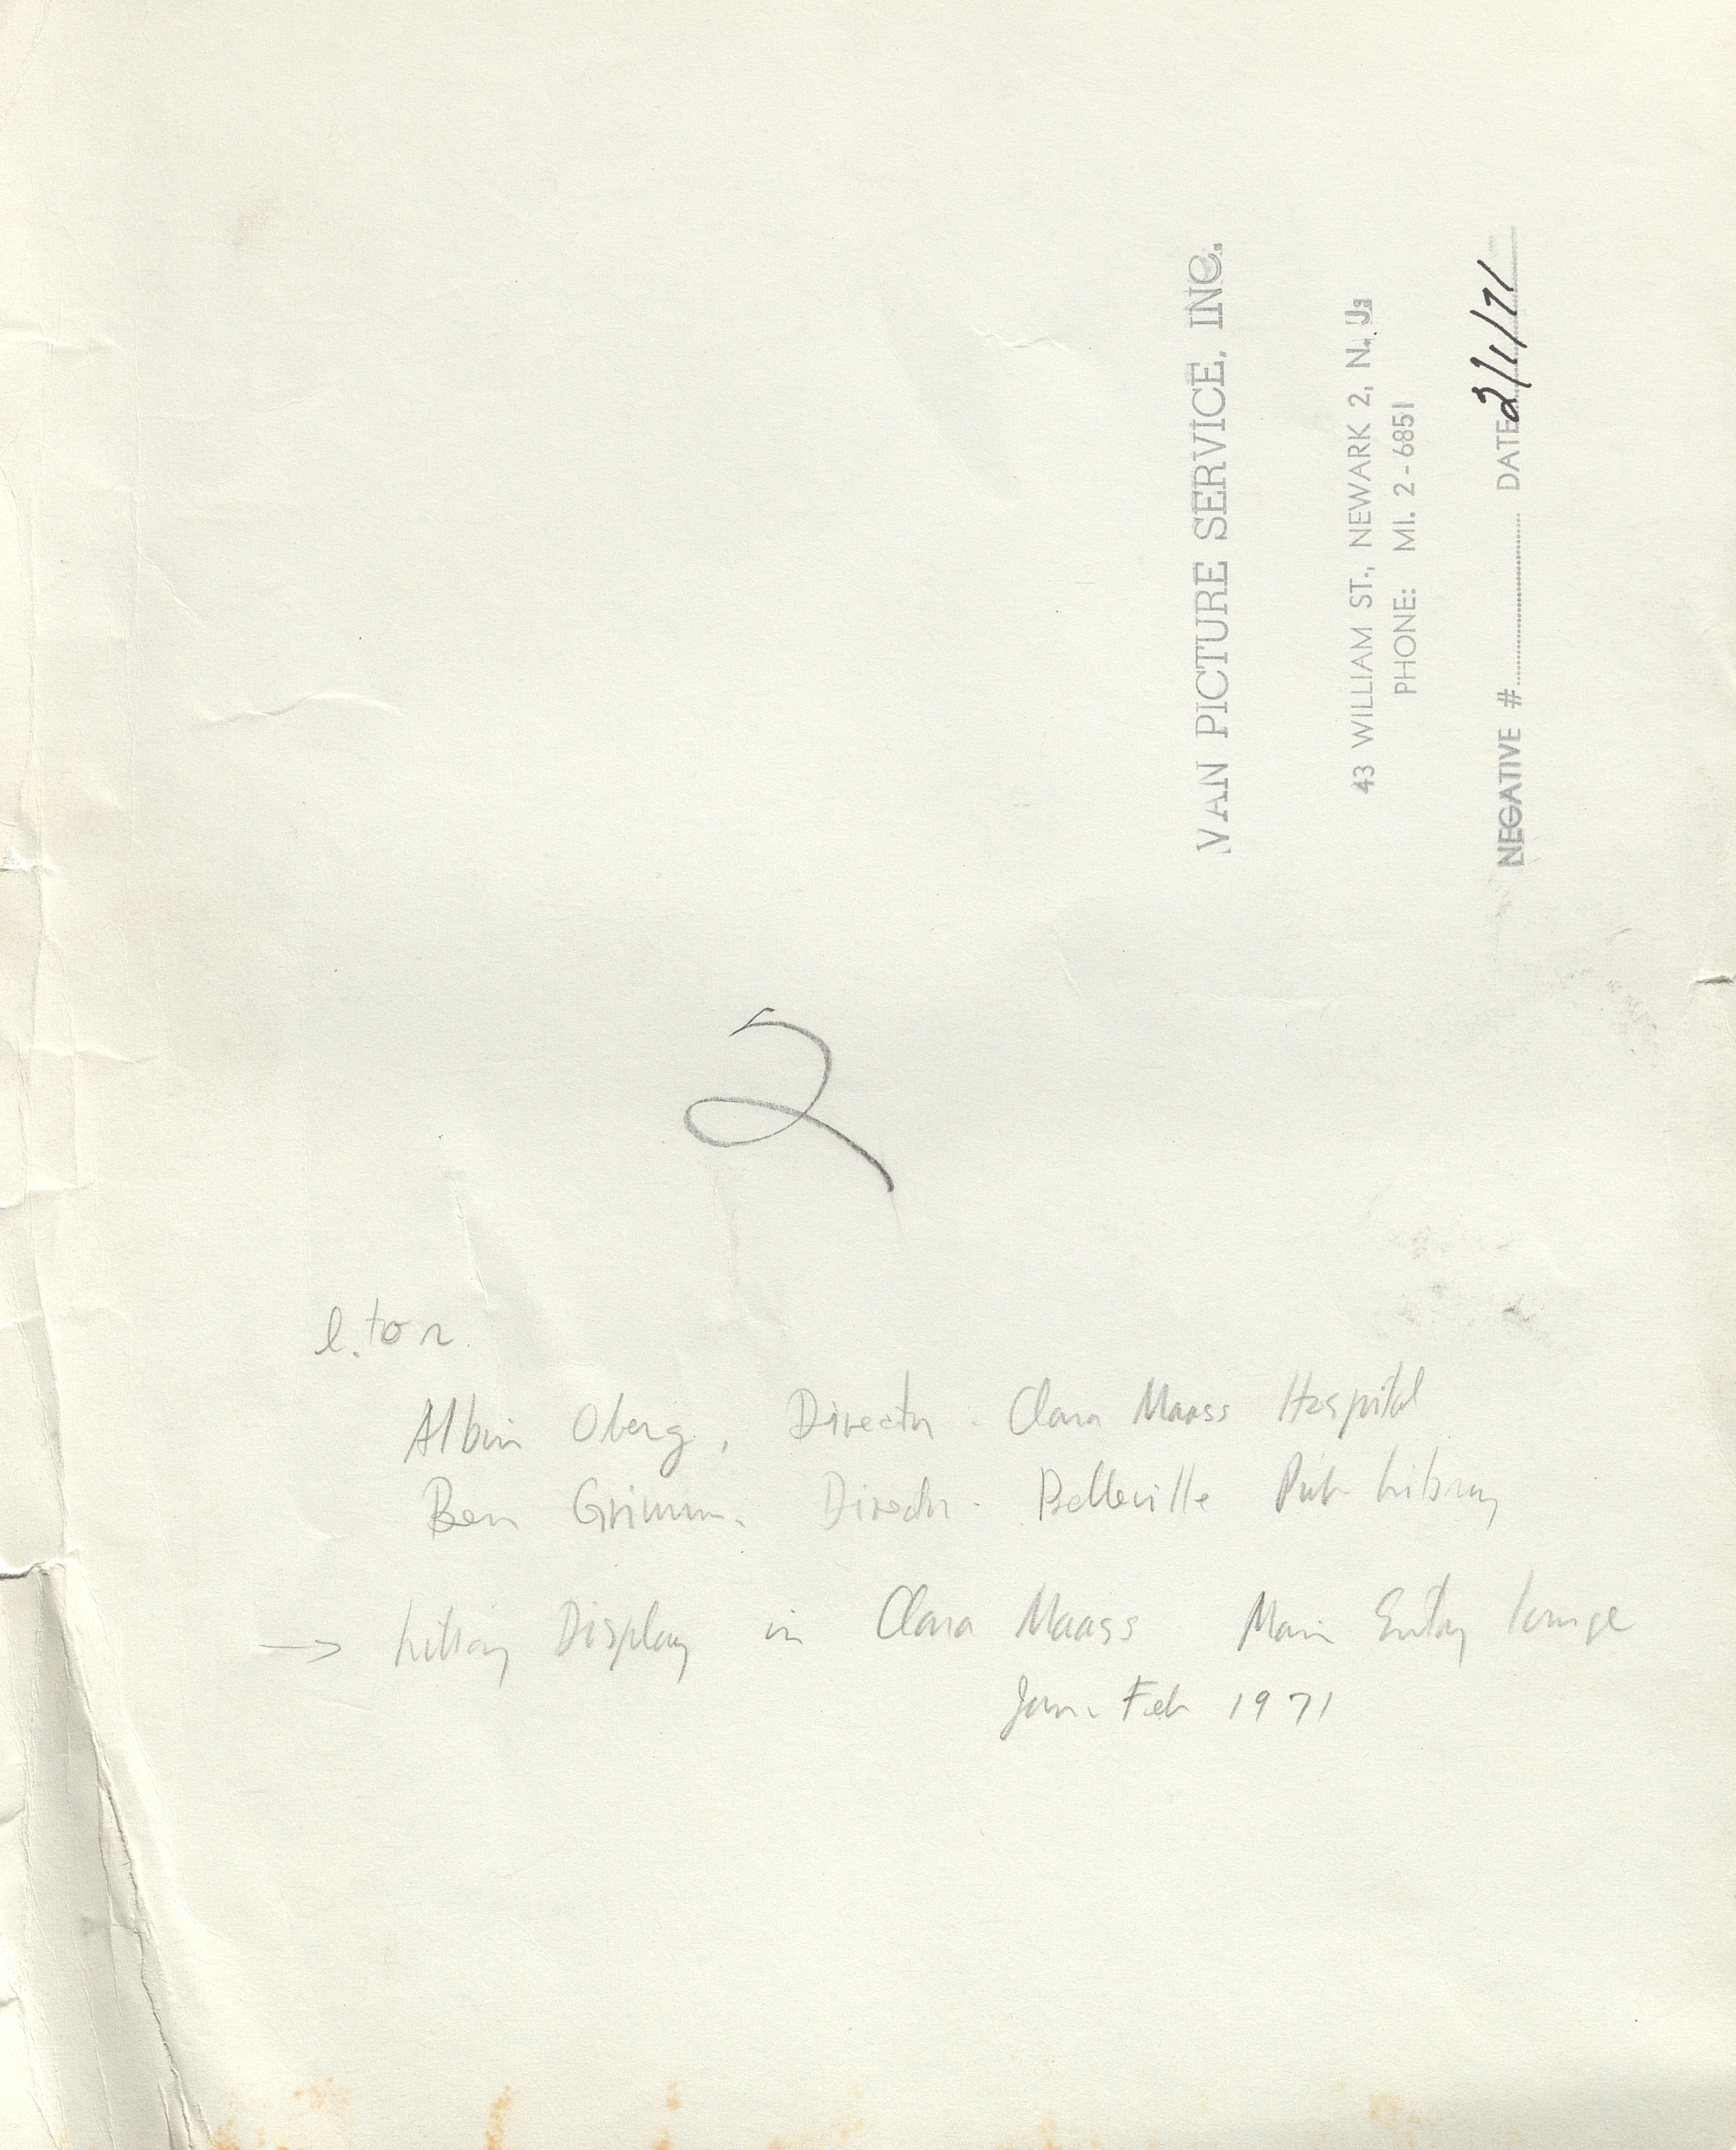 VAN PICTURE SERVICE, INC.
43 WILLIAM ST., NEWARK 2, N. J.
PHONE: MI. 2-6851
NEGATIVE # DATE 2/1/71
2
l. to r.
Albin Oberg, Director - Clara Maass Hospital
Ben Grimm. Director - Belleville Pub Library
→ Library Display in Clara Maass Main Entry lounge
Jan. Feb 1971